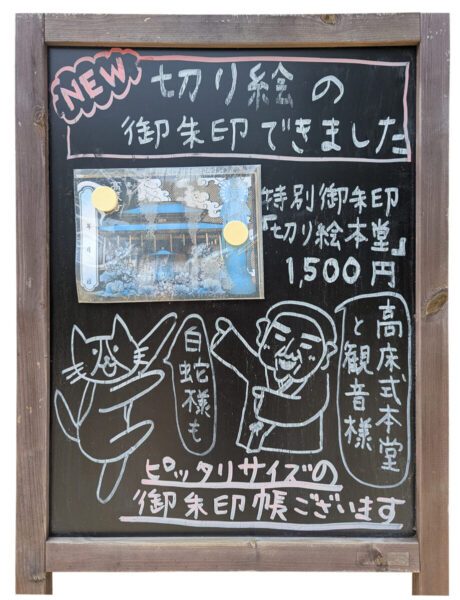 NEW
切り絵の
御朱印できました
特別御朱印
『切り絵本堂』
1,500円
高床式本堂
と観音様
白蛇様も
ピッタリサイズの
御朱印帳ございます